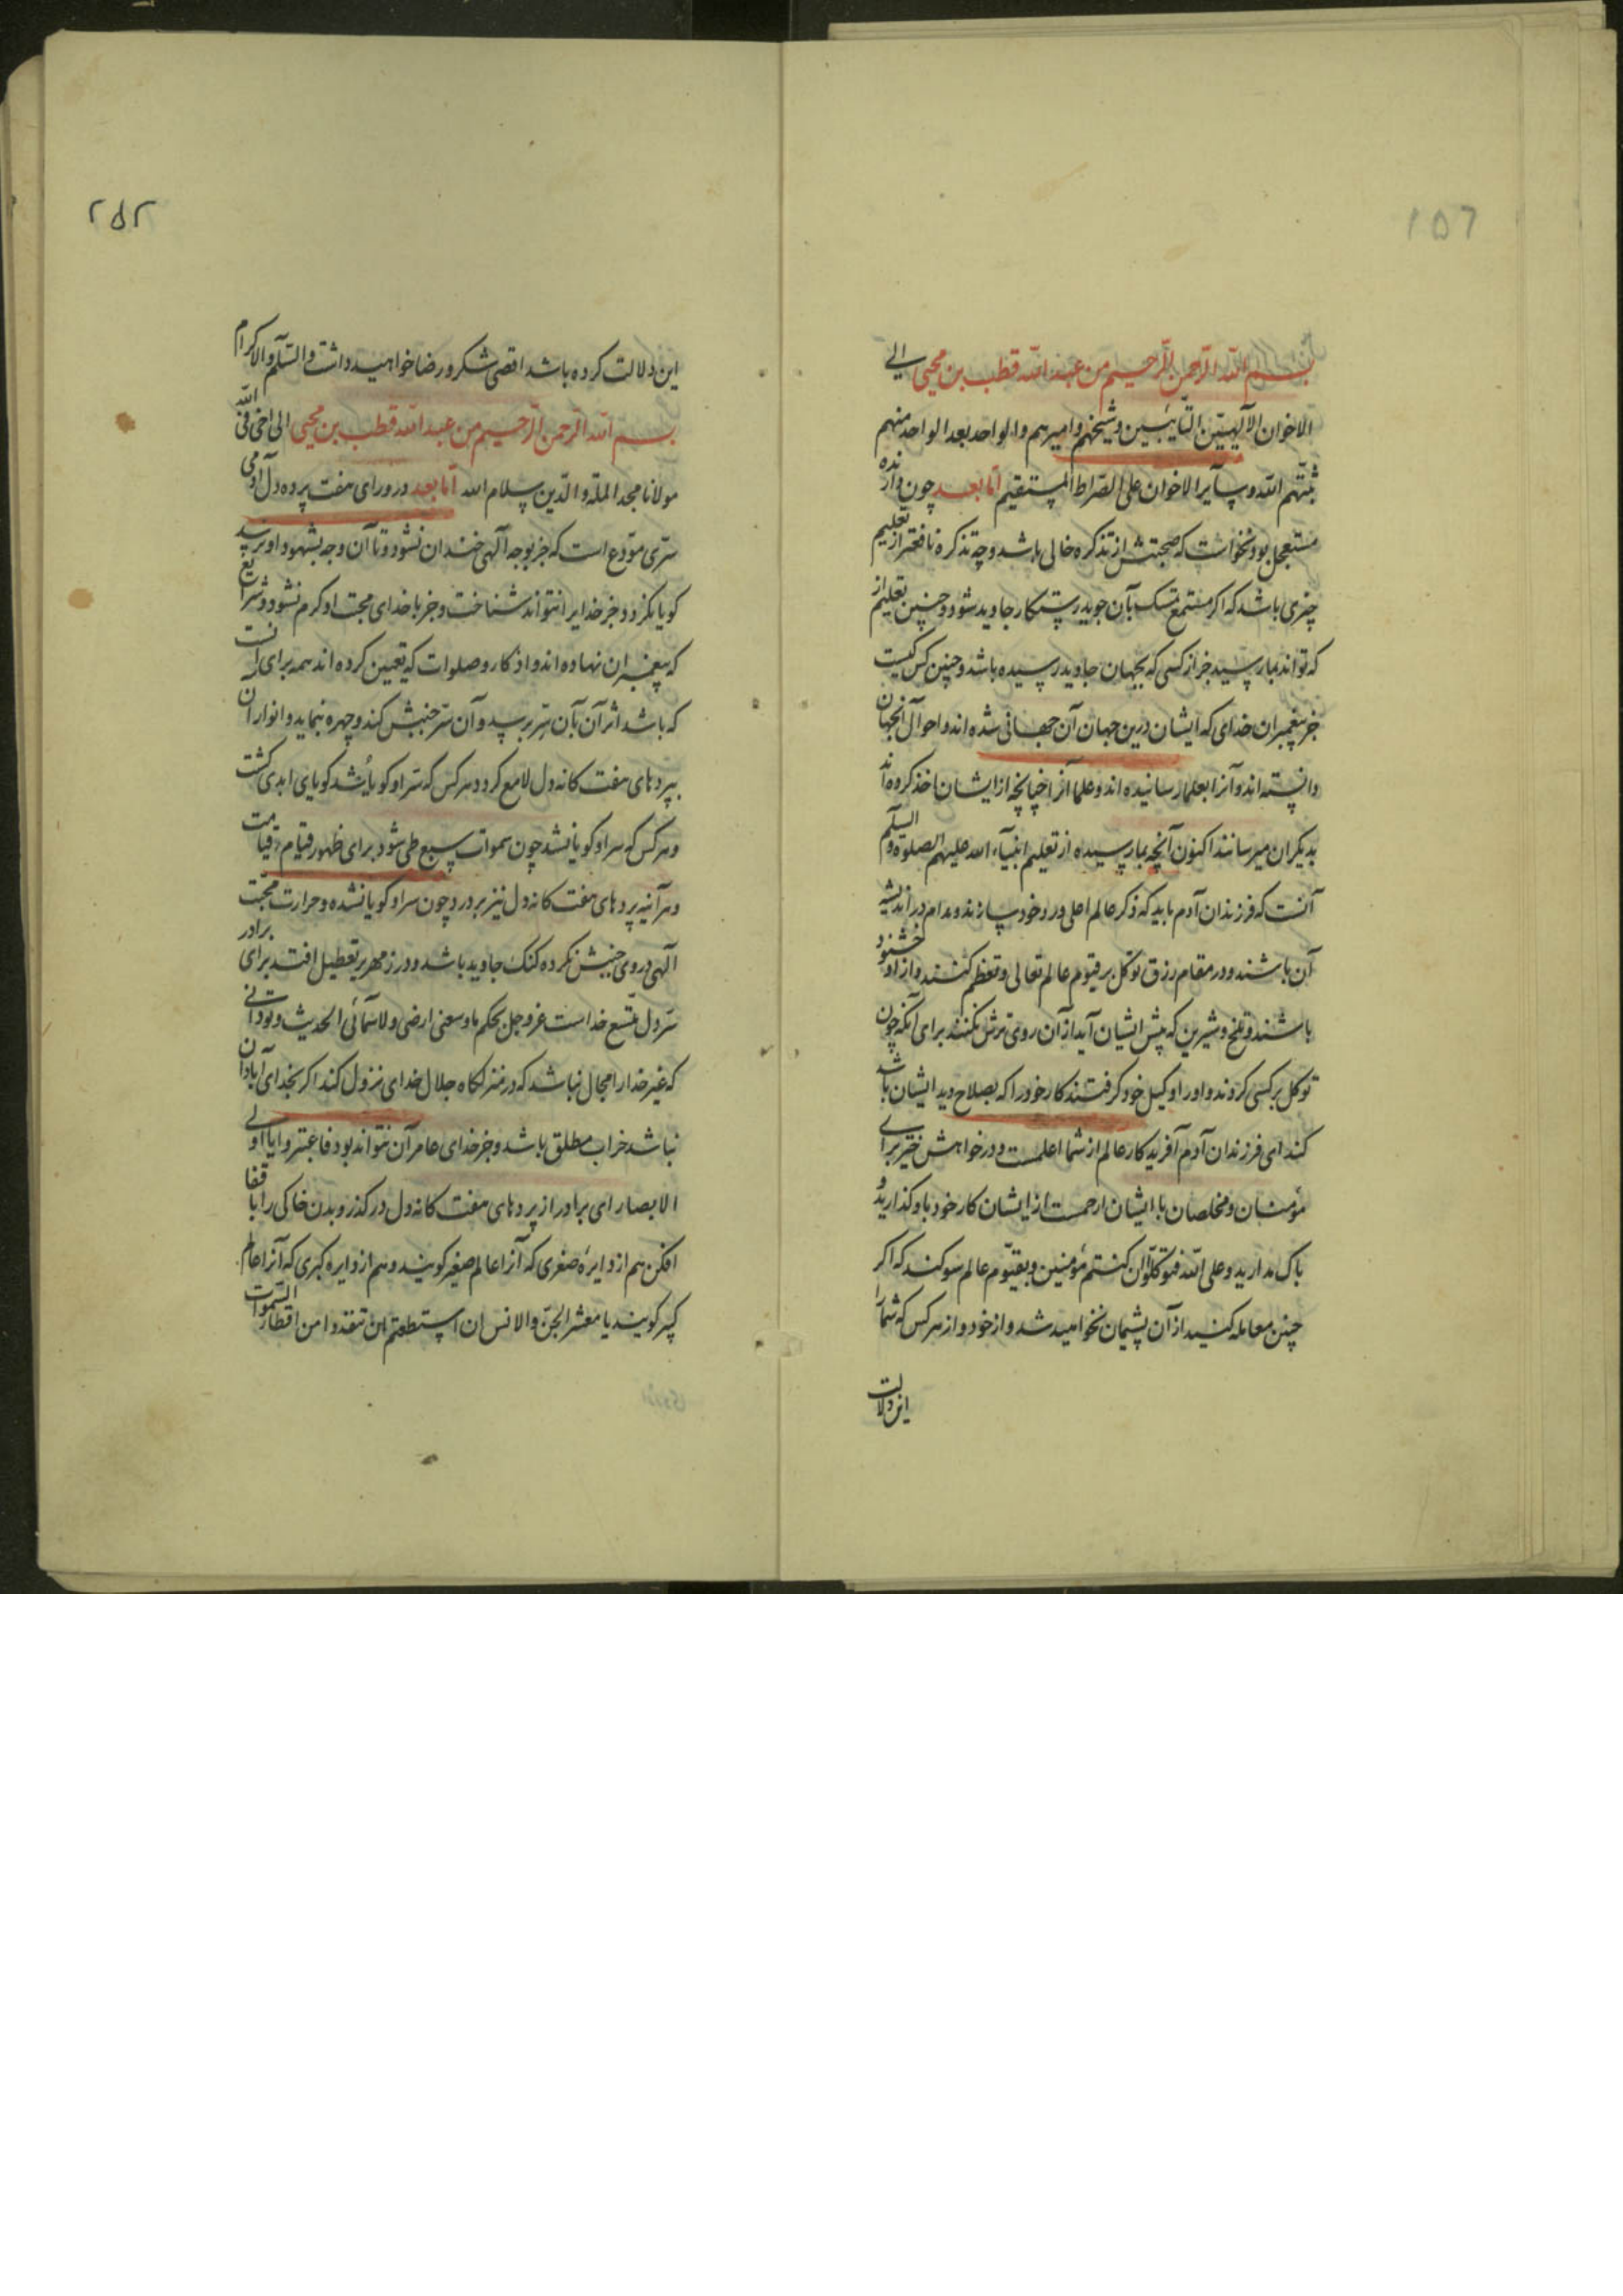 ۱۵۶
بسم الله الرحمن الرحیم من عبد الله قطب بن محیی الی
الاخوان الآلهیین التایبین و شیخهم و امیرهم و الواحد بعد الواحد منهم
ثبتهم الله و سایر الاخوان علی الصراط المستقیم اما بعد چون وارنده
مستعجل بود نخواست که صحبتش از تذکره خالی باشد و چه تذکره نافعتر از تعلیم
چیزی باشد که اگر مستمع تمسک بآن جوید رستکار جاوید شود و چنین تعلیم از
که تواند بما رسید جز از کسی که بجهان جاوید رسیده باشد و چنین کس کیست
جز پیغمبران خدای که ایشان درین جهان آن جهانی شده اند و احوال آنجهان
دانسته اند و آنرا بعلما رسانیده اند و علما آنرا چنانچه از ایشان اخذ کرده اند
بدیکران میرسانند اکنون آنچه بما رسیده از تعلیم انبیآء الله علیهم الصلوة و السلم
آنست که فرزندان آدم باید که ذکر عالم اعلی ورد خود سازند و مدام در اندیشه
آن باشند و در مقام رزق توکل بر قیوم عالم تعالی و تعظم کنند و از او خشنود
باشند و تلخ و شیرین که پیش ایشان آید از آن روی ترش نکنند برای آنکه چون
توکل بر کسی کردند و او را وکیل خود کرفتند کار خود را که بصلاح دید ایشان باشد
کند ای فرزندان آدم آفریدکار عالم از شما اعلمست و در خواهش خیر برای
مؤمنان و مخلصان با ایشان ارحمست از ایشان کار خود باو کذارید و
باک مدارید و علی الله فتوکلوا ان کنتم مؤمنین و بقیوم عالم سوکند که اکر
چنین معامله کنید از آن پشیمان نخواهید شد و از خود و از هر کس که شما را
این دلالت
۲۵۲
این دلالت کرده باشد اقصی شکر و رضا خواهید داشت و السلم و الاکرام
بسم الله الرحمن الرحیم من عبد الله قطب بن محیی الی اخی فی الله
مولانا مجد الملة و الدین سلام الله اما بعد در ورای هفت پرده دل آدمی
سری مودع است که جز بوجه آلهی خندان نشود و تا آن وجه بشهود او نرسد
کویا نکردد و جز خدایرا نتواند شناخت و جز با خدای محبت او کرم نشود و شرایع
که پیغمبران نهاده اند و اذکار و صلوات که تعیین کرده اند همه برای آنست
که باشد اثر آن بآن سر برسد و آن سر جنبش کند و چهره بنماید و انوار آن
بپردهای هفت کانه دل لامع کردد هر کس که سر او کویا شد کویای ابدی کشت
و هر کس که سر او کویا نشد چون سموات سبع طی شود برای ظهور قیام قیامت
هر آینه پردهای هفت کانه دل نیز بردرد و چون سر او کویا نشده و حرارت محبت
آلهی در وی جنبش نکرده کنک جاوید باشد و در زمهریر تعطیل افتد برای برادر
سر دل متسع خداست عز و جل بحکم ما وسعنی ارضی و لا سمائی الحدیث و تو دانی
که غیر خدا را مجال نباشد که در منزلکاه جلال خدای نزول کند اکر بخدای آبادان
نباشد خراب مطلق باشد و جز خدای عامر آن نتواند بود فاعتبروا یا اولی
الابصار ای برادر از پردهای هفت کانه دل در کذر و بدن خاکی را با قفا
افکن هم از دایره صغری که آنرا عالم صغیر کویند و هم از دایره کبری که آنرا عالم
کبیر کویند یا معشر الجن و الانس ان استطعتم ان تنفذوا من اقطار السموات